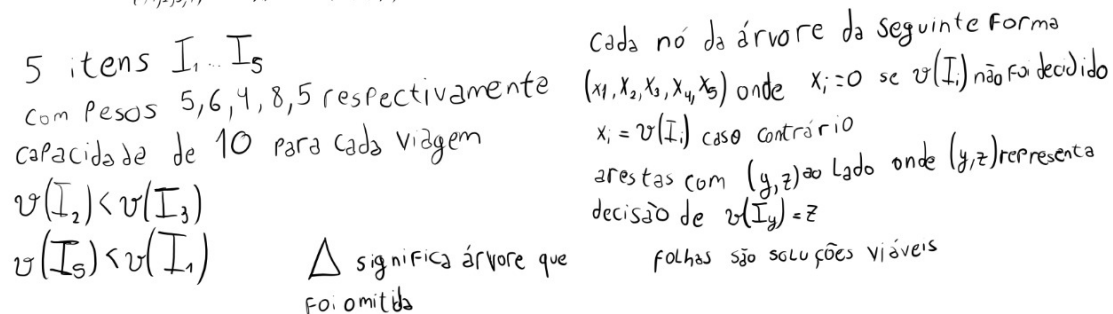 5 itens I₁...I₅
com Pesos 5,6,4,8,5 respectivamente
capacidade de 10 para cada viagem
v(I₂)<v(I₃)
v(I₅)<v(I₁)
△ significa árvore que
foi omitida
cada nó da árvore da seguinte forma
(x₁,x₂,x₃,x₄,x₅) onde xᵢ=0 se v(Iᵢ) não foi decidido
xᵢ=v(Iᵢ) caso contrário
arestas com (y,z) ao lado onde (y,z) representa
decisão de v(I_y)=z
folhas são soluções viáveis